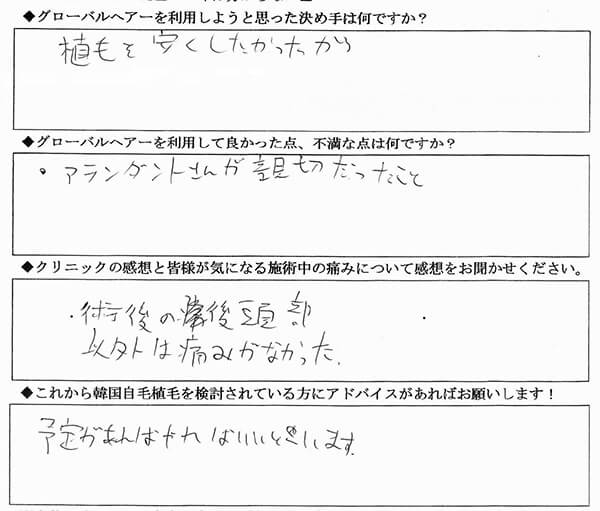 ◆グローバルヘアーを利用しようと思った決め手は何ですか？
植毛を安くしたかったから
◆グローバルヘアーを利用して良かった点、不満な点は何ですか？
・アランダントさんが親切だったこと
◆クリニックの感想と皆様が気になる施術中の痛みについて感想をお聞かせください。
・術後の後頭部
以外は痛みがなかった.
◆これから韓国自毛植毛を検討されている方にアドバイスがあればお願いします！
予定があればやればいいと思います